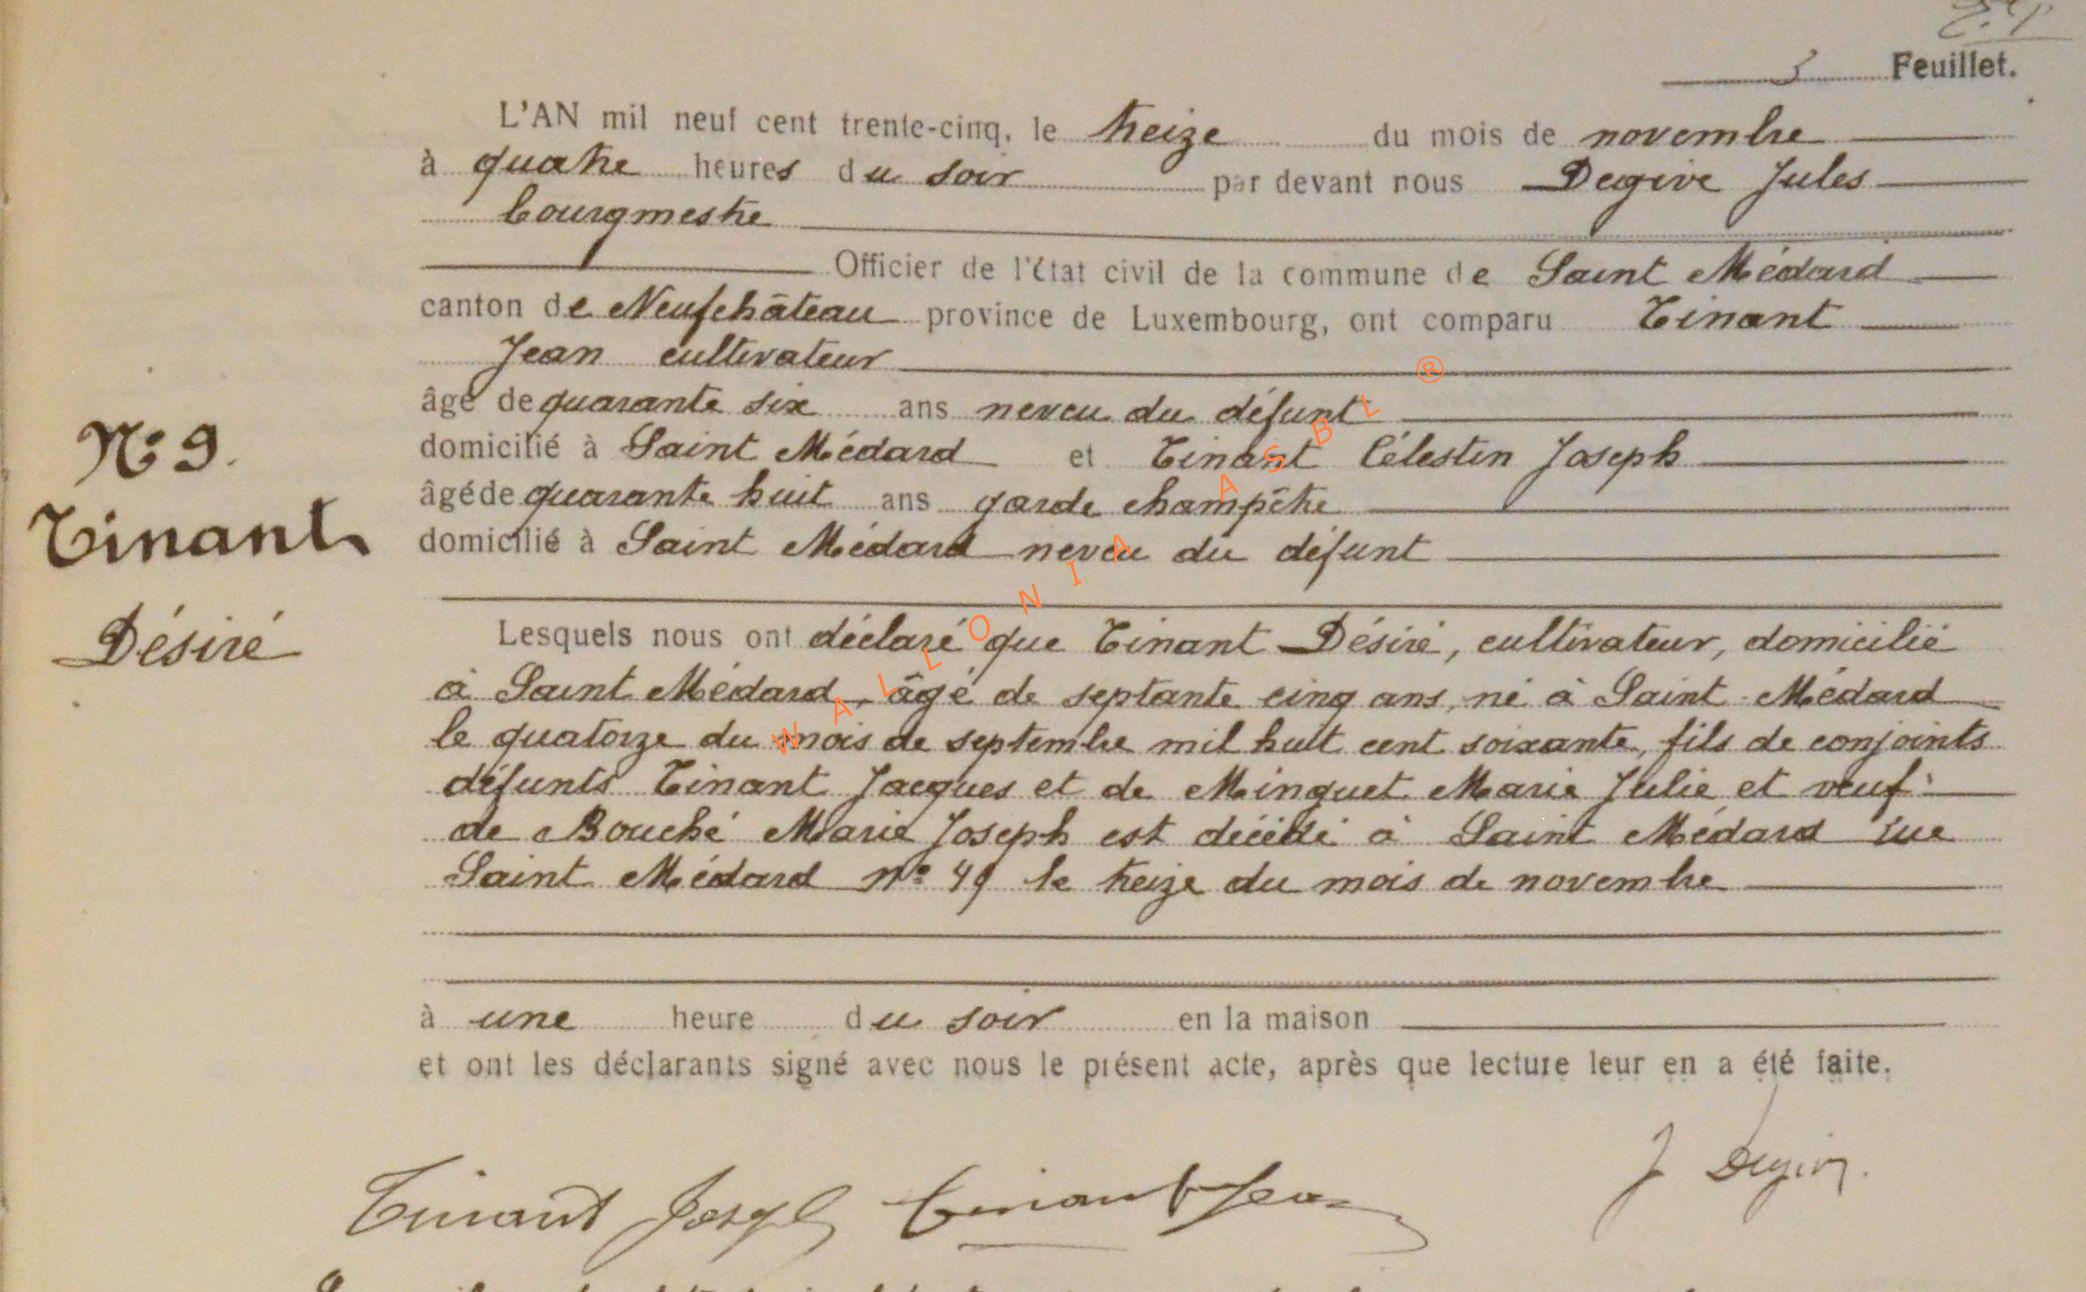 3 Feuillet.
L'AN mil neuf cent trente-cinq, le treize du mois de novembre
à quatre heures du soir par devant nous Degive Jules
bourgmestre
Officier de l'état civil de la commune de Saint Médard
canton de Neufchâteau province de Luxembourg, ont comparu Tinant
Jean cultivateur
âgé de quarante six ans neveu du défunt
domicilié à Saint Médard et Tinant Célestin Joseph
âgé de quarante huit ans garde champêtre
domicilié à Saint Médard neveu du défunt
N° 9.
Tinant
Désiré
Lesquels nous ont déclaré que Tinant Désiré, cultivateur, domicilié
à Saint Médard, âgé de septante cinq ans, né à Saint Médard
le quatorze du mois de septembre mil huit cent soixante, fils de conjoints
défunts Tinant Jacques et de Minguet Marie Julie et veuf
de Bouché Marie Joseph est décédé à Saint Médard rue
Saint Médard n° 49 le treize du mois de novembre
à une heure du soir en la maison
et ont les déclarants signé avec nous le présent acte, après que lecture leur en a été faite.
Tinant Joseph Tinant Jean J Degive
WALLONIA ASBL ®